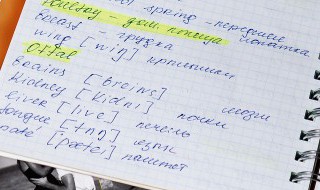 spring - переднее
Poultry - дом. птица лопатка
breast - грудка
wing [wiŋ] крылышки
Offal
Brains [breins] мозги
Kidney [kidni] почки
liver [live] печень
tongue [tʌŋ] язык
paté [pætei] паштет